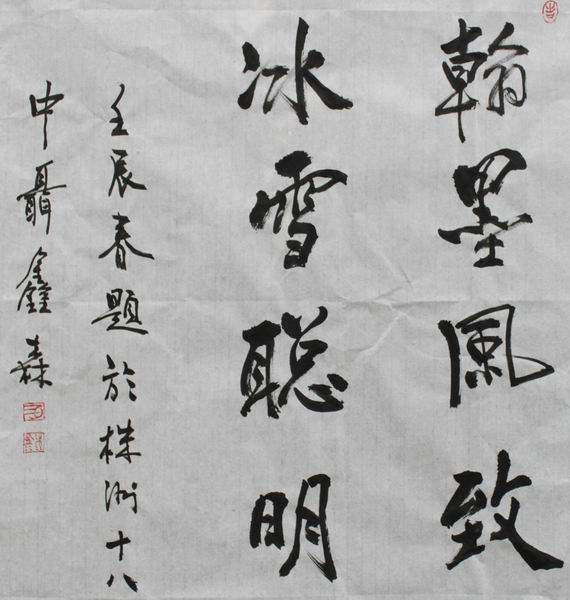 翰墨風致
冰雪聪明
壬辰春題於株洲十八
中聶鑫森